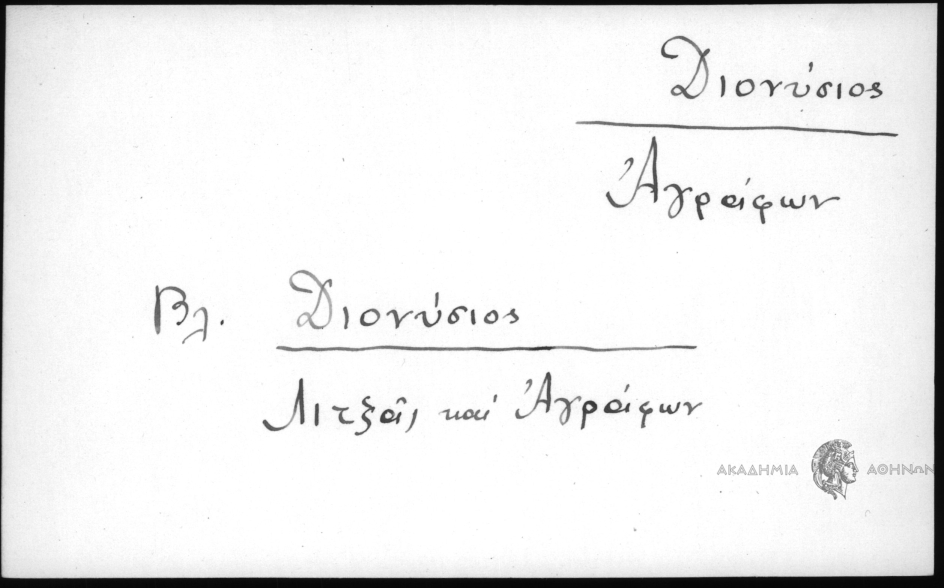 Διονύσιος
Ἀγράφων
Βλ. Διονύσιος
Λιτζᾶς καί Ἀγράφων
ΑΚΑΔΗΜΙΑ ΑΘΗΝΩΝ